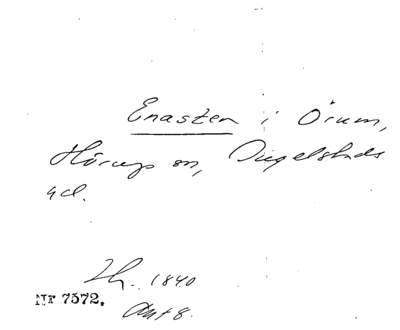 Enasten i Örum,
Hörups sn, Ingelstads
hd.
Th. 1840
Ant 8.
Nr 7572.